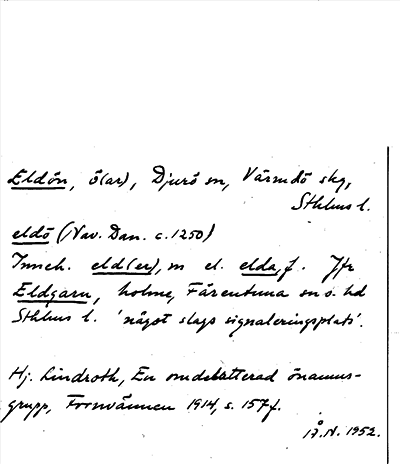 Eldön, ö(ar), Djurö sn, Värmdö skg,
Sthlms l.
eldö (Nav. Dan. c. 1250)
Inneh. eld(er), m el. elda, f. Jfr
Eldgarn, holme, Färentuna sn o. hd
Sthlms l. 'något slags signaleringsplats'.
Hj. Lindroth, En omdebatterad önamns-
grupp, Fornvännen 1914, s. 157 f.
1952.